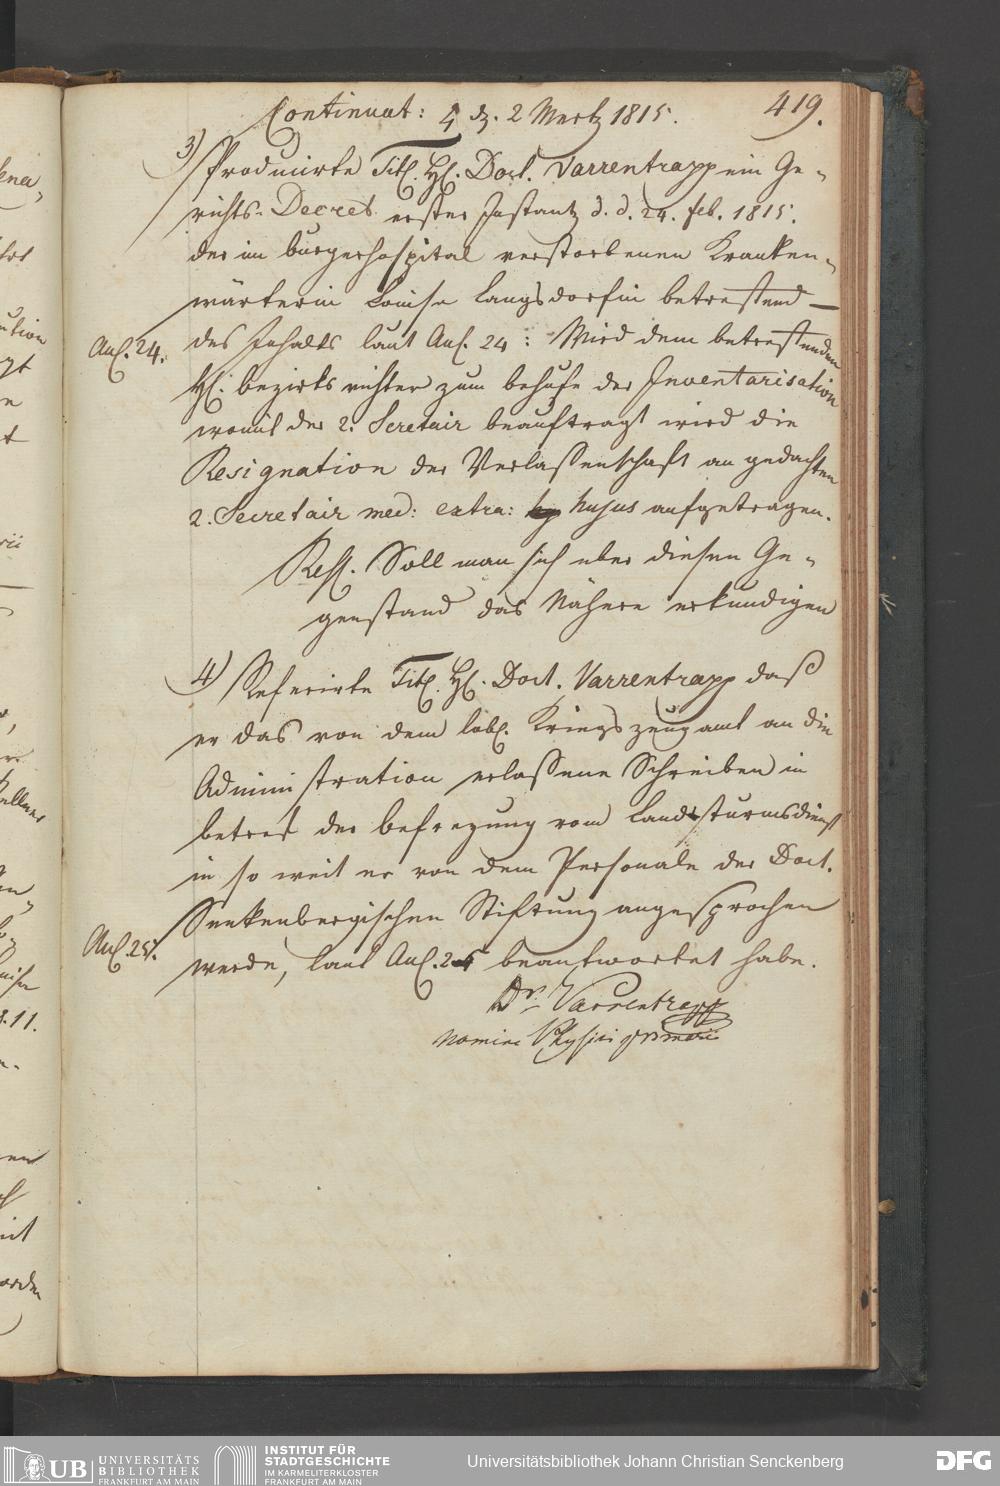 Continuat: ♃ dz. 2 Mertz 1815.
419.
3) Producirte Titl. Hl. Doct. Varrentrapp ein Ge-
richts-Decret erster Instantz d. d. 24. feb. 1815.
der im burgerhospital verstorbenen Kranken-
wärterin Louise Langsdorfin betreffend —
Anl. 24.
des Inhalts laut Anl. 24: Wird dem betreffenden
Hl. bezirksrichter zum behufe der Inventarisation
womit der 2. Secretair beauftragt wird die
Resignation der Verlassenschaft an gedachten
2. Secretair med: extra: hujus aufgetragen.
Resl. Soll man sich uber diesen Ge-
genstand das Nähere erkundigen
4) Referirte Titl. Hl. Doct. Varrentrapp daß
er das von dem löbl. Kriegszeugamt an die
Administration erlassene Schreiben in
betref der befreyung vom Landsturmsdienst
in so weit er von dem Personale der Doct.
Senkenbergischen Stiftung angesprochen
Anl. 25.
werde, laut Anl. 25 beantwortet habe.
Dr. Varrentrapp
nomine Physici primarii
UB UNIVERSITÄTS
BIBLIOTHEK
FRANKFURT AM MAIN
INSTITUT FÜR
STADTGESCHICHTE
IM KARMELITERKLOSTER
FRANKFURT AM MAIN
Universitätsbibliothek Johann Christian Senckenberg
DFG